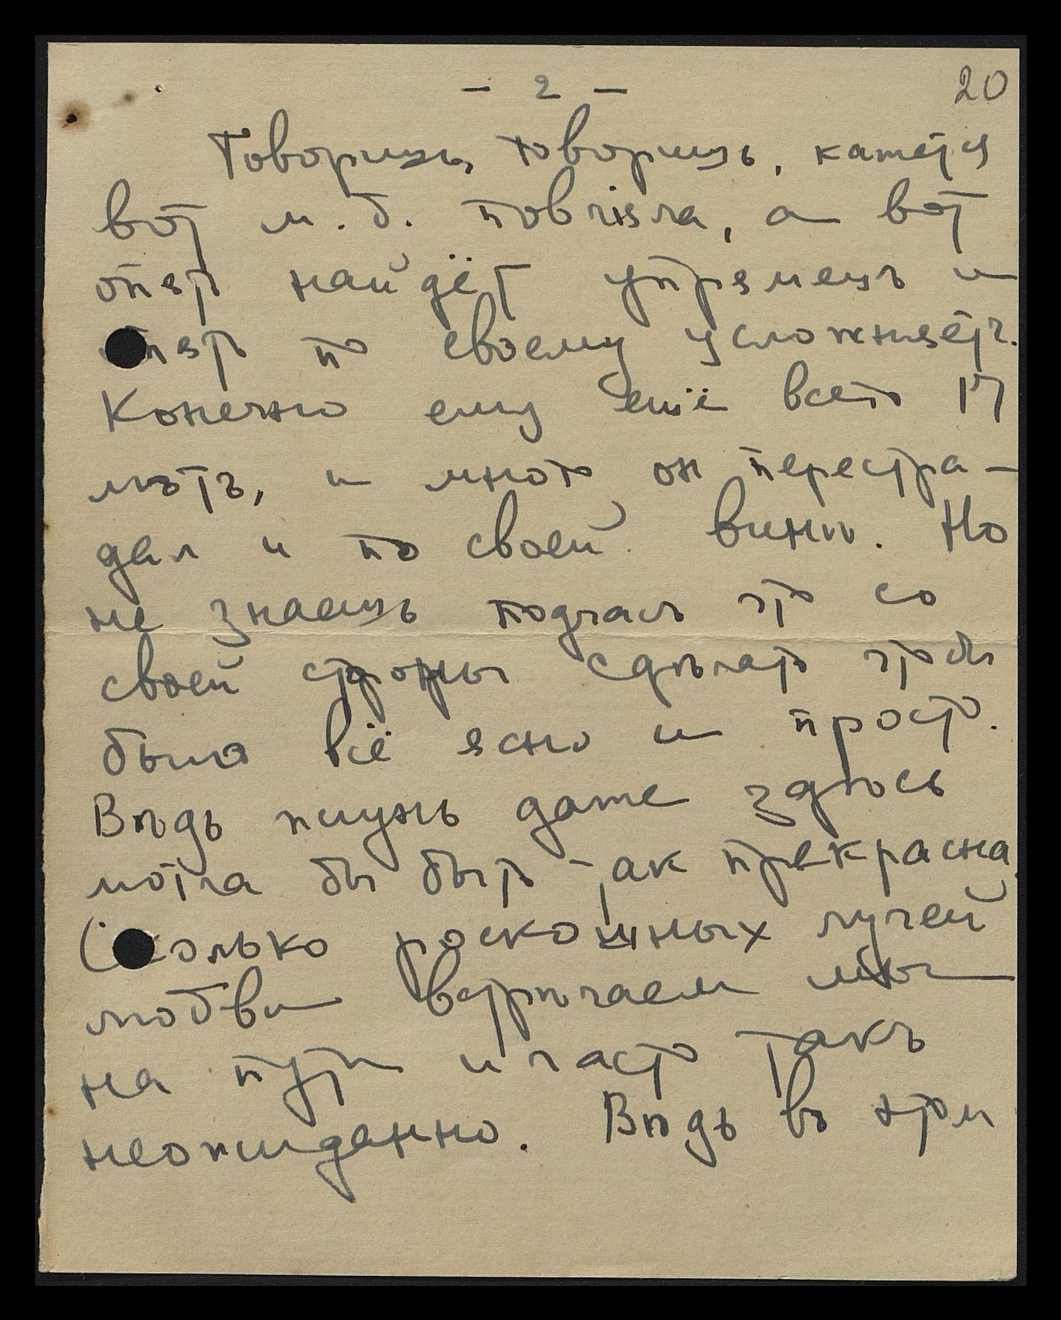 - 2 -
20
Говоришь, говоришь, кажется
вот м. б. повлiяла, а вот
опять найдёт упрямецъ и
опять по своему усложняетъ.
Конечно ему ещё всего 17
лѣтъ, и много он перестра-
дал и по своей винѣ. Но
не знаешь подчасъ что со
своей стороны сдѣлать чтобы
было всё ясно и просто.
Вѣдь жизнь даже здѣсь
могла бы быть так прекрасна
Сколько роскошных лучей
любви встрѣчаем мы
на пути и часто такъ
неожиданно. Вѣдь въ этом